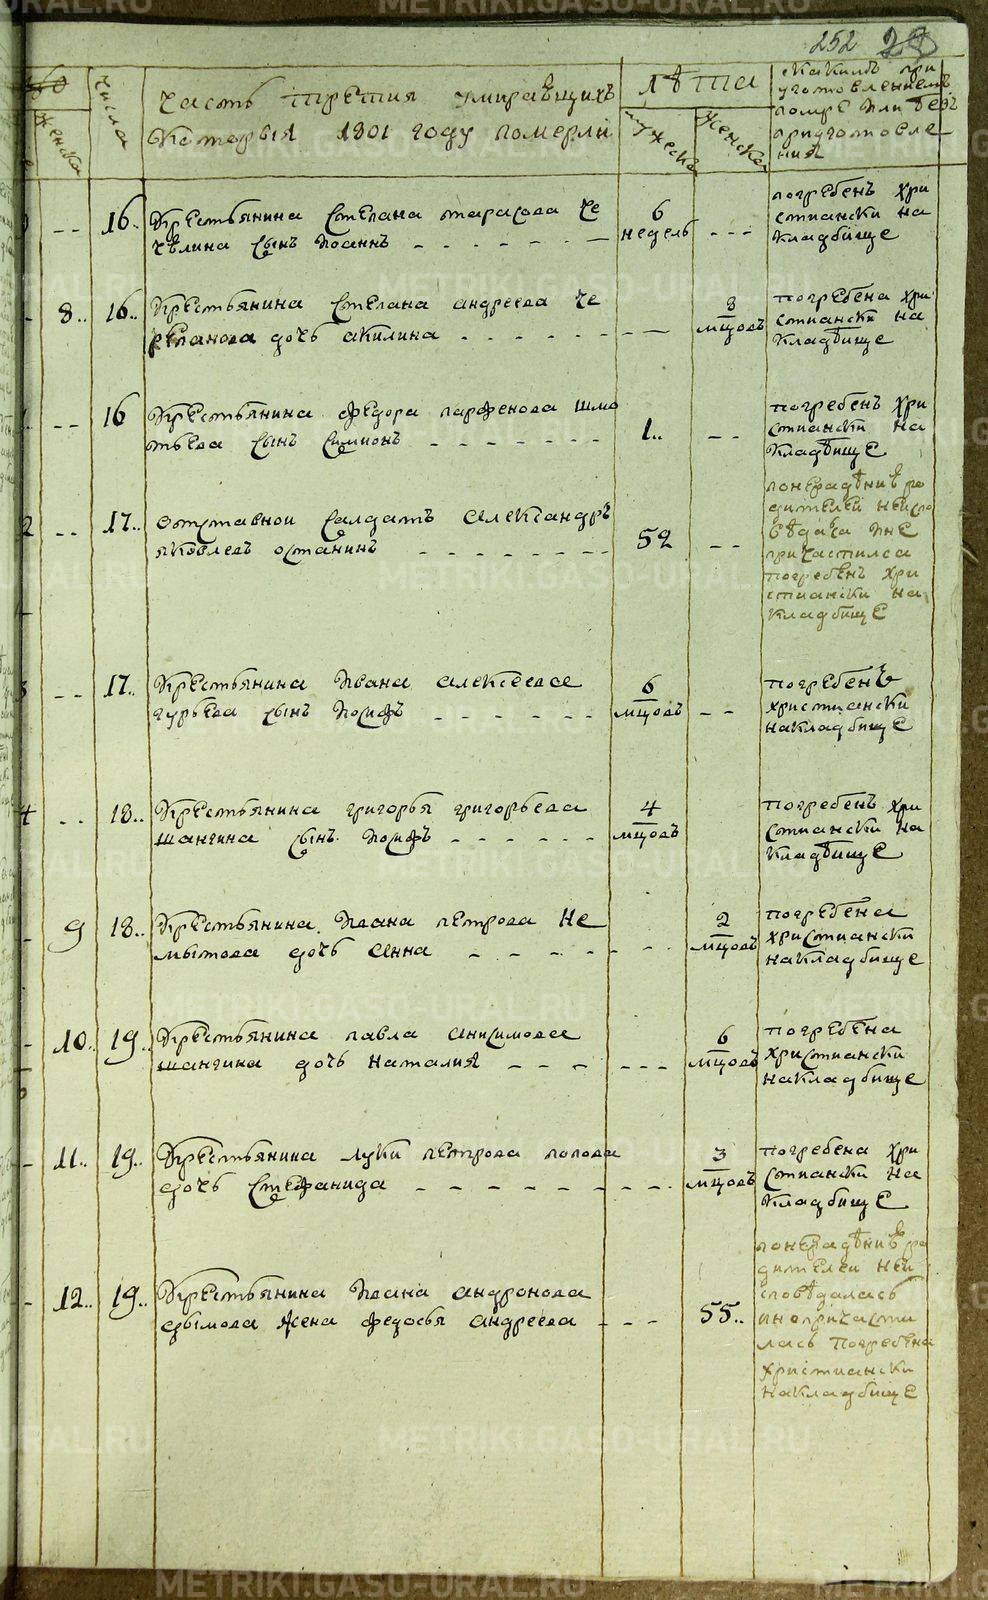 252 29
числа
женска
часть третия умиравщихъ
которыя 1801 году померли
лѣта
мужеска
женска
скакимъ при
уготовлениемъ
помре или безъ
приуготовле
ния
16.. крестьянина степана тарасова че
челина сынъ иоаннъ
6
недель
погребенъ хри
стиански на
кладбище
8.. 16.. крестьянина степана андреева че
репанова дочь акилина
8
мцовъ
погребена хри
стиански на
кладбище
16 крестьянина федора парфенова шмо
тьева сынъ симионъ
1..
погребенъ хри
стиански на
кладбище
17.. отставнои салдатъ александръ
яковлевъ останинъ
52
понерадѣнию ро
дителей неиспо
ведался ине
причастился
погребенъ хри
стиански на
кладбище
17.. крестьянина ивана алексеева
гурьева сынъ иосифъ
6
мцовъ
погребенъ
христиански
накладбище
18.. крестьянина григорья григорьева
шангина сынъ иосифъ
4
мцовъ
погребенъ хри
стиански на
кладбище
9 18.. крестьянина ивана петрова не
мытова дочь анна
2
мцовъ
погребена
христиански
накладбище
10.. 19.. крестьянина павла анисимова
шангина дочь наталия
6
мцовъ
погребена
христиански
накладбище
11.. 19.. крестьянина луки петрова попова
дочь стефанида
3
мцовъ
погребена хри
стиански на
кладбище
12.. 19.. крестьянина ивана андронова
дымова жена федосья андреева
55..
понерадѣнию ро
дителеи неи
споведалась
инепричасти
лась погребена
христиански
накладбище
METRIKI.GASO-URAL.RU